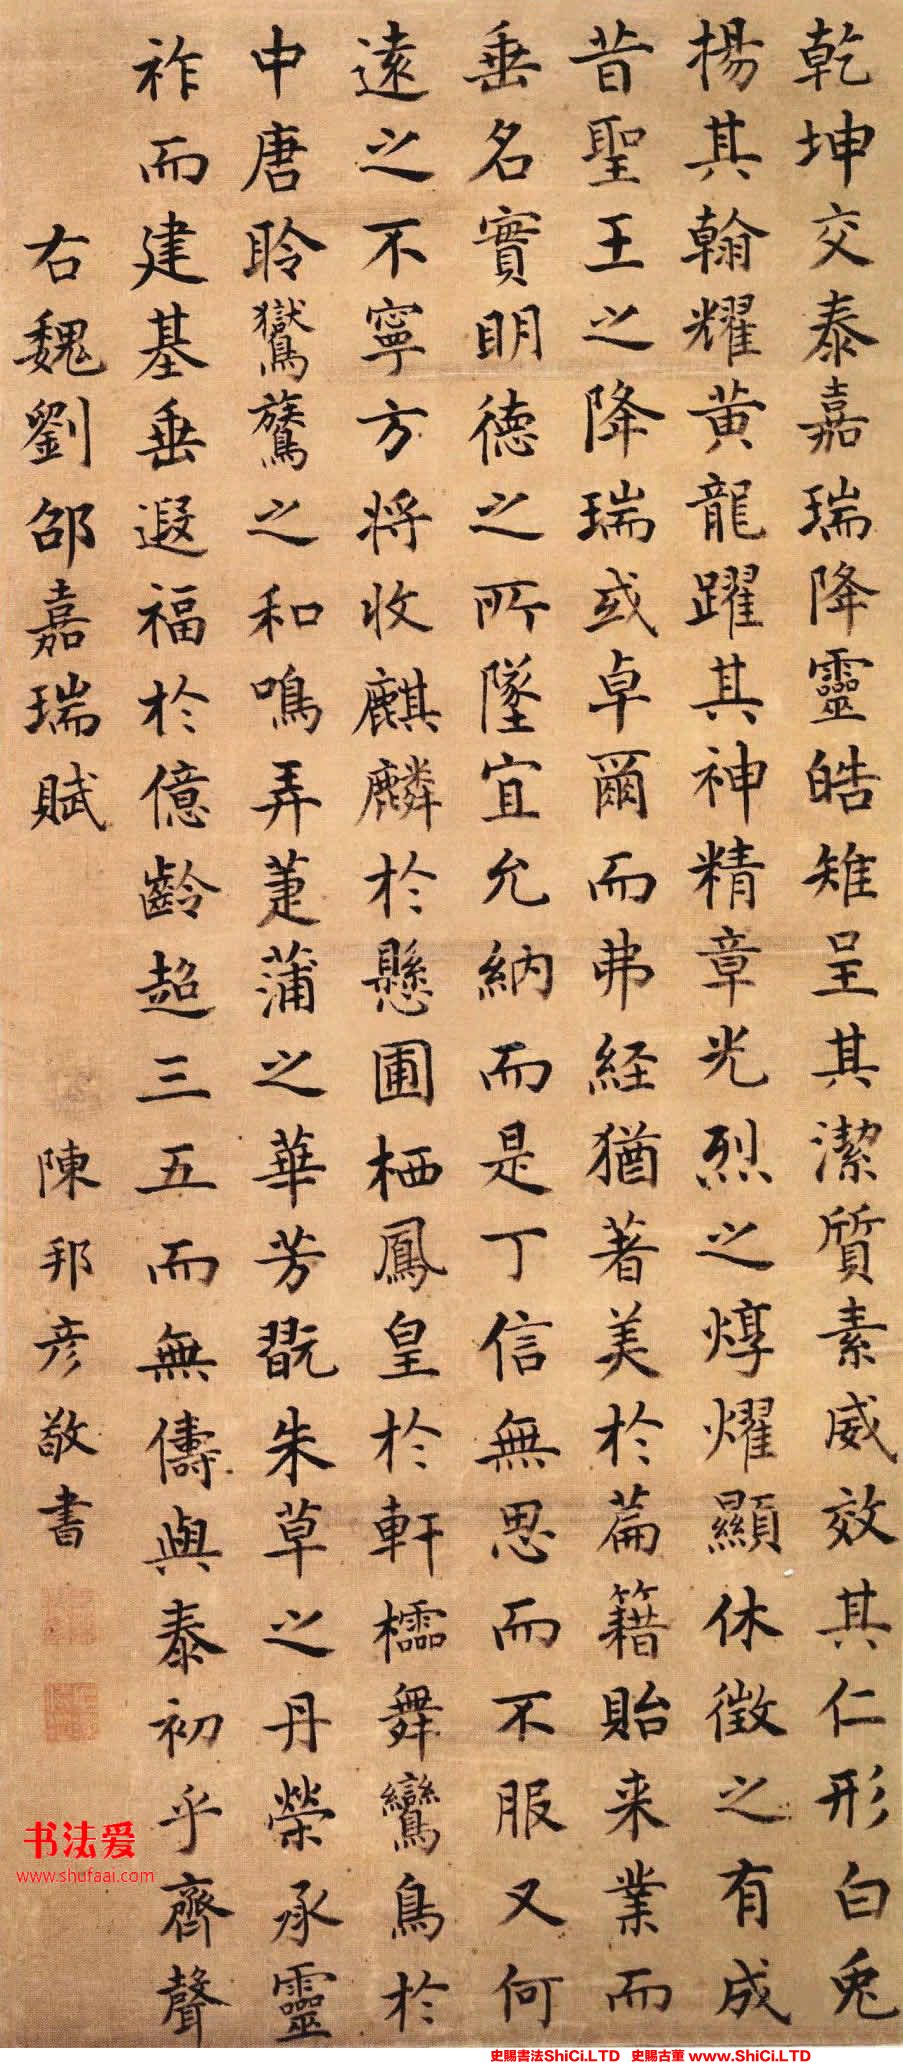 乾坤交泰嘉瑞降靈皓雉呈其潔質素威效其仁形白兎
楊其翰耀黄龍躍其神精章光烈之焞燿顯休徴之有成
昔聖王之降瑞或卓爾而弗経猶著美於篇籍貽来業而
垂名實明德之所墜宜允納而是丁信無思而不服又何
遠之不寧方将收麒麟於懸圃栖鳳皇於軒櫺舞鸞鳥於
中唐聆鸑鷟之和鳴弄萐蒲之華芳翫朱草之丹榮承靈
祚而建基垂遐福於億齡超三五而無儔與泰初乎齊聲
右魏劉邵嘉瑞賦
陳邦彦敬書
书法爱
www.shufaai.com
史賜書法ShiCi.LTD 史賜古董 www.ShiCi.LTD